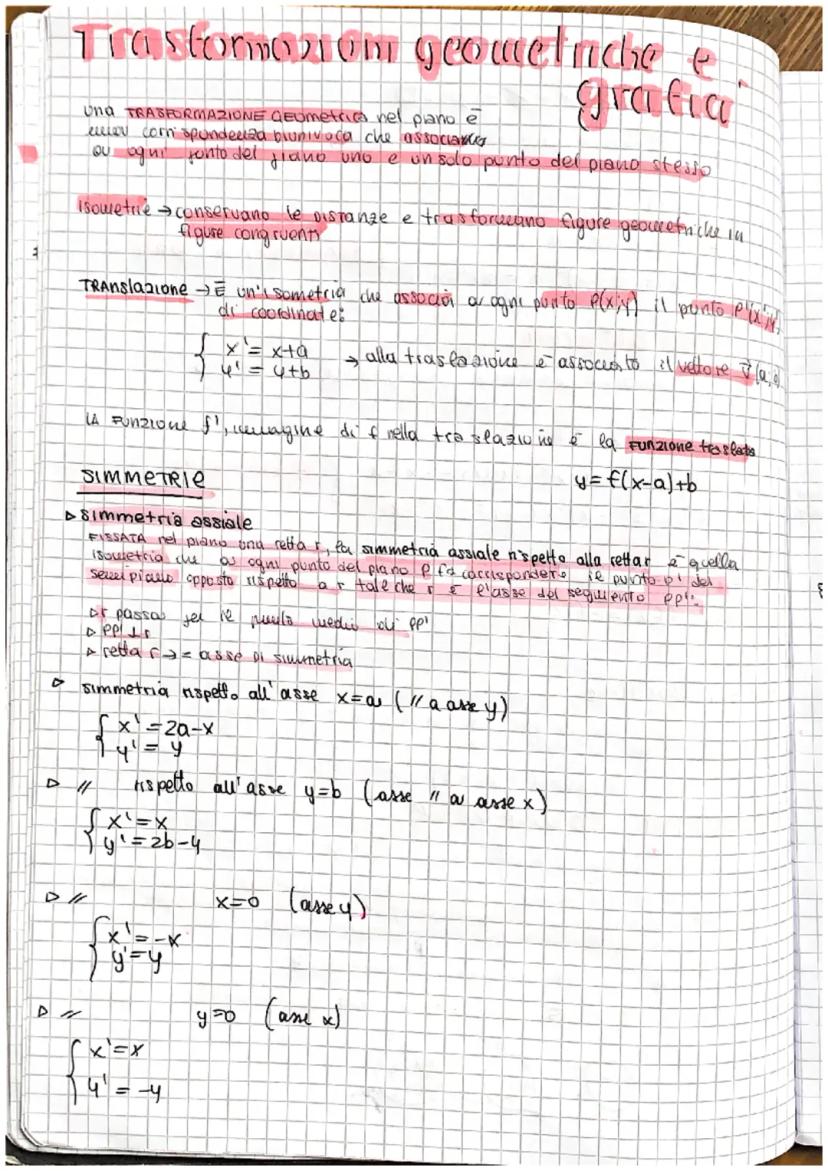 Trasformazioni geometriche e
grafici
una TRASFORMAZIONE GEOMETRICA nel piano è
una corrispondenza biunivoca che associa
a ogni punto del piano uno e un solo punto del piano stesso
Isometrie → conservano le DISTANZE e trasformano figure geometriche in
figure congruenti
TRANSlazione → È un'isometria che associa a ogni punto P(x;y) il punto P'(x';y')
di coordinate:
{ x' = x+a
y' = y+b → alla traslazione è associato il vettore v⃗(a;
LA FUNZIONE f', immagine di f nella traslazione è la FUNZIONE traslata
y = f(x-a)+b
SIMMETRIE
▷ simmetria assiale
FISSATA nel piano una retta r, la simmetria assiale rispetto alla retta r è quella
isometria che a ogni punto del piano P fa corrispondere il punto P' del
semipiano opposto rispetto a r tale che r è l'asse del segmento PP'.
▷ r passa per il punto medio di PP'
▷ PP' ⊥ r
▷ retta r → = asse DI simmetria
▷ simmetria rispetto all'asse x=a (// a asse y)
{ x' = 2a-x
y' = y
▷ // rispetto all'asse y=b (asse // a asse x)
{ x' = x
y' = 2b-y
▷ // x=0 (asse y)
{ x' = -x
y' = y
▷ // y=0 (asse x)
{ x' = x
y' = -y